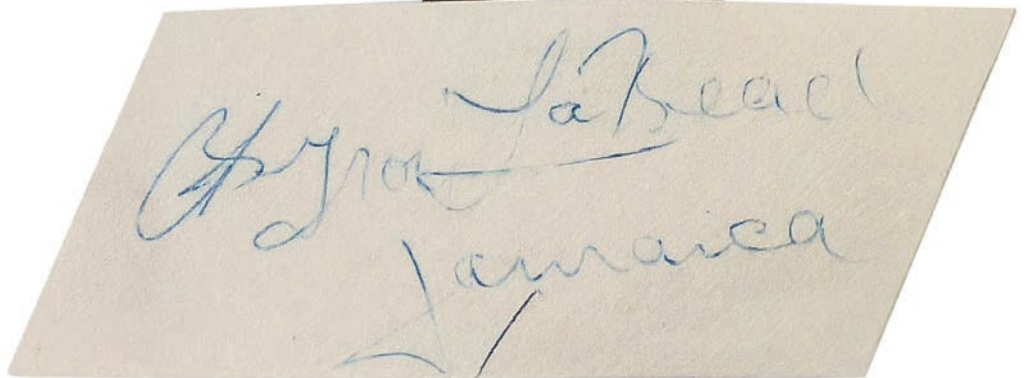 Byron LaBeach
Jamaica